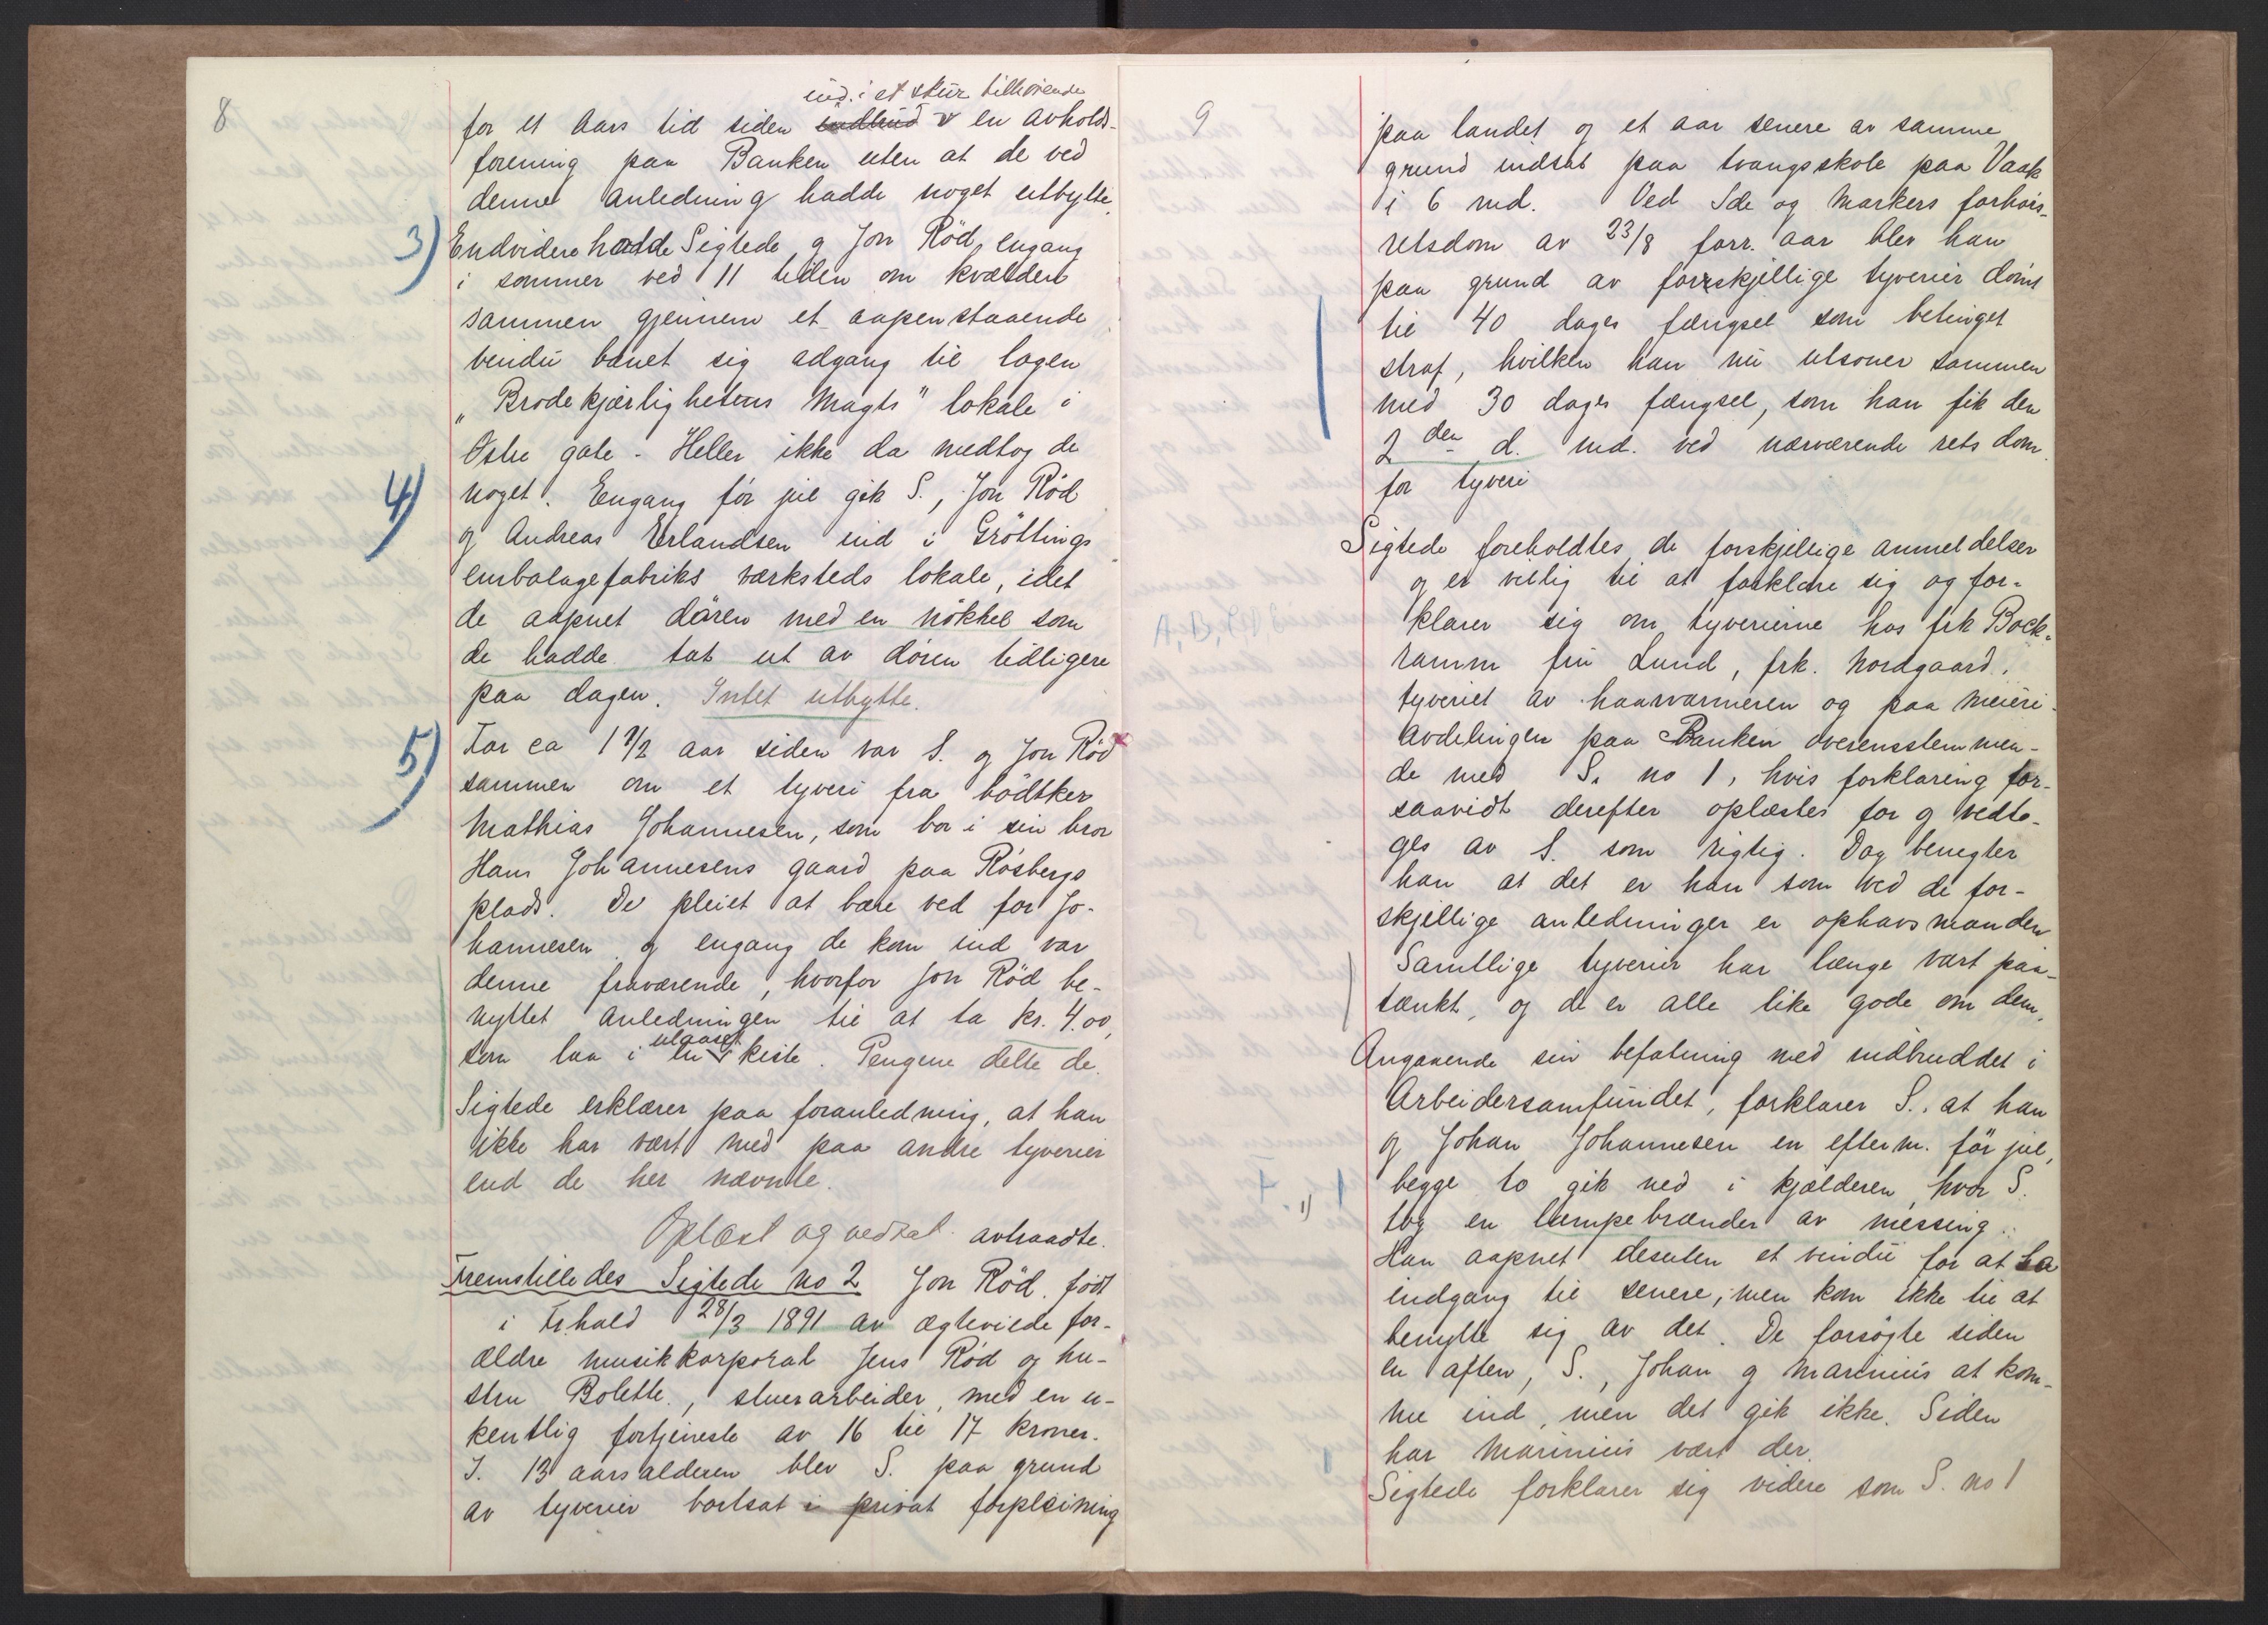 8
ind i et skur tilhörende
for et Aars tid siden indbrud v en avholds-
forening paa Banken uten at de ved
denne anledning hadde noget utbytte.
3) Endvidere hadde Sigtede og Jon Röd engang
i sommer ved 11 tiden om kvælden
sammen gjennem et aapenstaaende
vindu banet sig adgang til logen
"Brodekjærlighetens Magts" lokale i
Östre gate. Heller ikke da medtog de
4) noget. Engang för jul gik S., Jon Röd
og Andreas Erlandsen ind i Gröttings
embalagefabriks værksteds lokale, idet
de aapnet dören med en nökkel som
de hadde tat ut av dören tidligere
paa dagen. Intet utbytte.
5) For ca 1 1/2 aar siden var S. og Jon Röd
sammen om et tyveri fra bödtker
Mathias Johannesen, som bor i sin bror
Hans Johannesens gaard paa Rösbergs
plads. De pleiet at bære ved for Jo-
hannesen og engang de kom ind var
denne fraværende, hvorfor Jon Röd be-
nyttet anledningen til at ta kr. 4.00,
ulaaset
som laa i en v kiste. Pengene delte de.
Sigtede erklærer paa foranledning, at han
ikke har vært med paa andre tyverier
end de her nævnte.
Oplæst og vedtat. avtraadte.
Fremstilledes Sigtede no 2 Jon Röd. födt
i Fr.hald 28/3 1891 av ægteviede for-
ældre musikkorporal Jens Röd og hu-
stru Bolette., stuerarbeider, med en u-
kentlig fortjeneste av 16 til 17 kroner.
I 13 aarsalderen blev S. paa grund
av tyverier bortsat i privat forpleining
9
paa landet og et aar senere av samme
grund indsat paa tvangsskole paa Vaak
i 6 md. Ved Ide og Markers forhörs-
retsdom av 23/8 forr. aar blev han
paa grund av forskjellige tyverier dömt
til 40 dages fængsel som betinget
straf, hvilken han nu utsoner sammen
med 30 dages fængsel, som han fik den
2 den d. md. ved nærværende rets dom
for tyveri
Sigtede foreholdtes de forskjellige anmeldelser
og er villig til at forklare sig og for-
klarer sig om tyverierne hos frk Bock-
ramm fru Lund, frk. Nordgaard,
tyveriet av haarvarmeren og paa meieri
avdelingen paa Banken overensstemmen-
de med S. no 1, hvis forklaring for-
saavidt derefter oplæstes for og vedto-
ges av S. som rigtig. Dog benegter
han at det er han som ved de for-
skjellige anledninger er ophavsmanden
Samtlige tyverier har længe vært paa-
tænkt, og de er alle like gode om dem.
Angaaende sin befatning med indbruddet i
Arbeidersamfundet, forklarer S., at han
og Johan Johannesen en efterm. för jul,
begge to gik ned i kjælderen hvor S.
1) tog en lampebrænder av messing.
Han aapnet desuten et vindu for at ha
indgang til senere, men kom ikke til at
benytte sig av det. De forsögte siden
en aften, S., Johan og Marinius at kom-
me ind, men det gik ikke. Siden
har Marinius vært der.
Sigtede forklarer sig videre som S. no 1